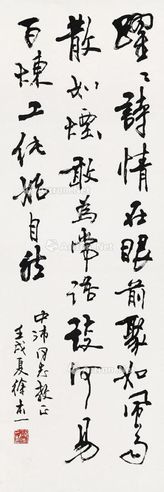 躍〻詩情在眼前聚如風雨
散如煙敢為常語談何易
百煉工純始自然
中沛同志教正
壬戌夏徐本一